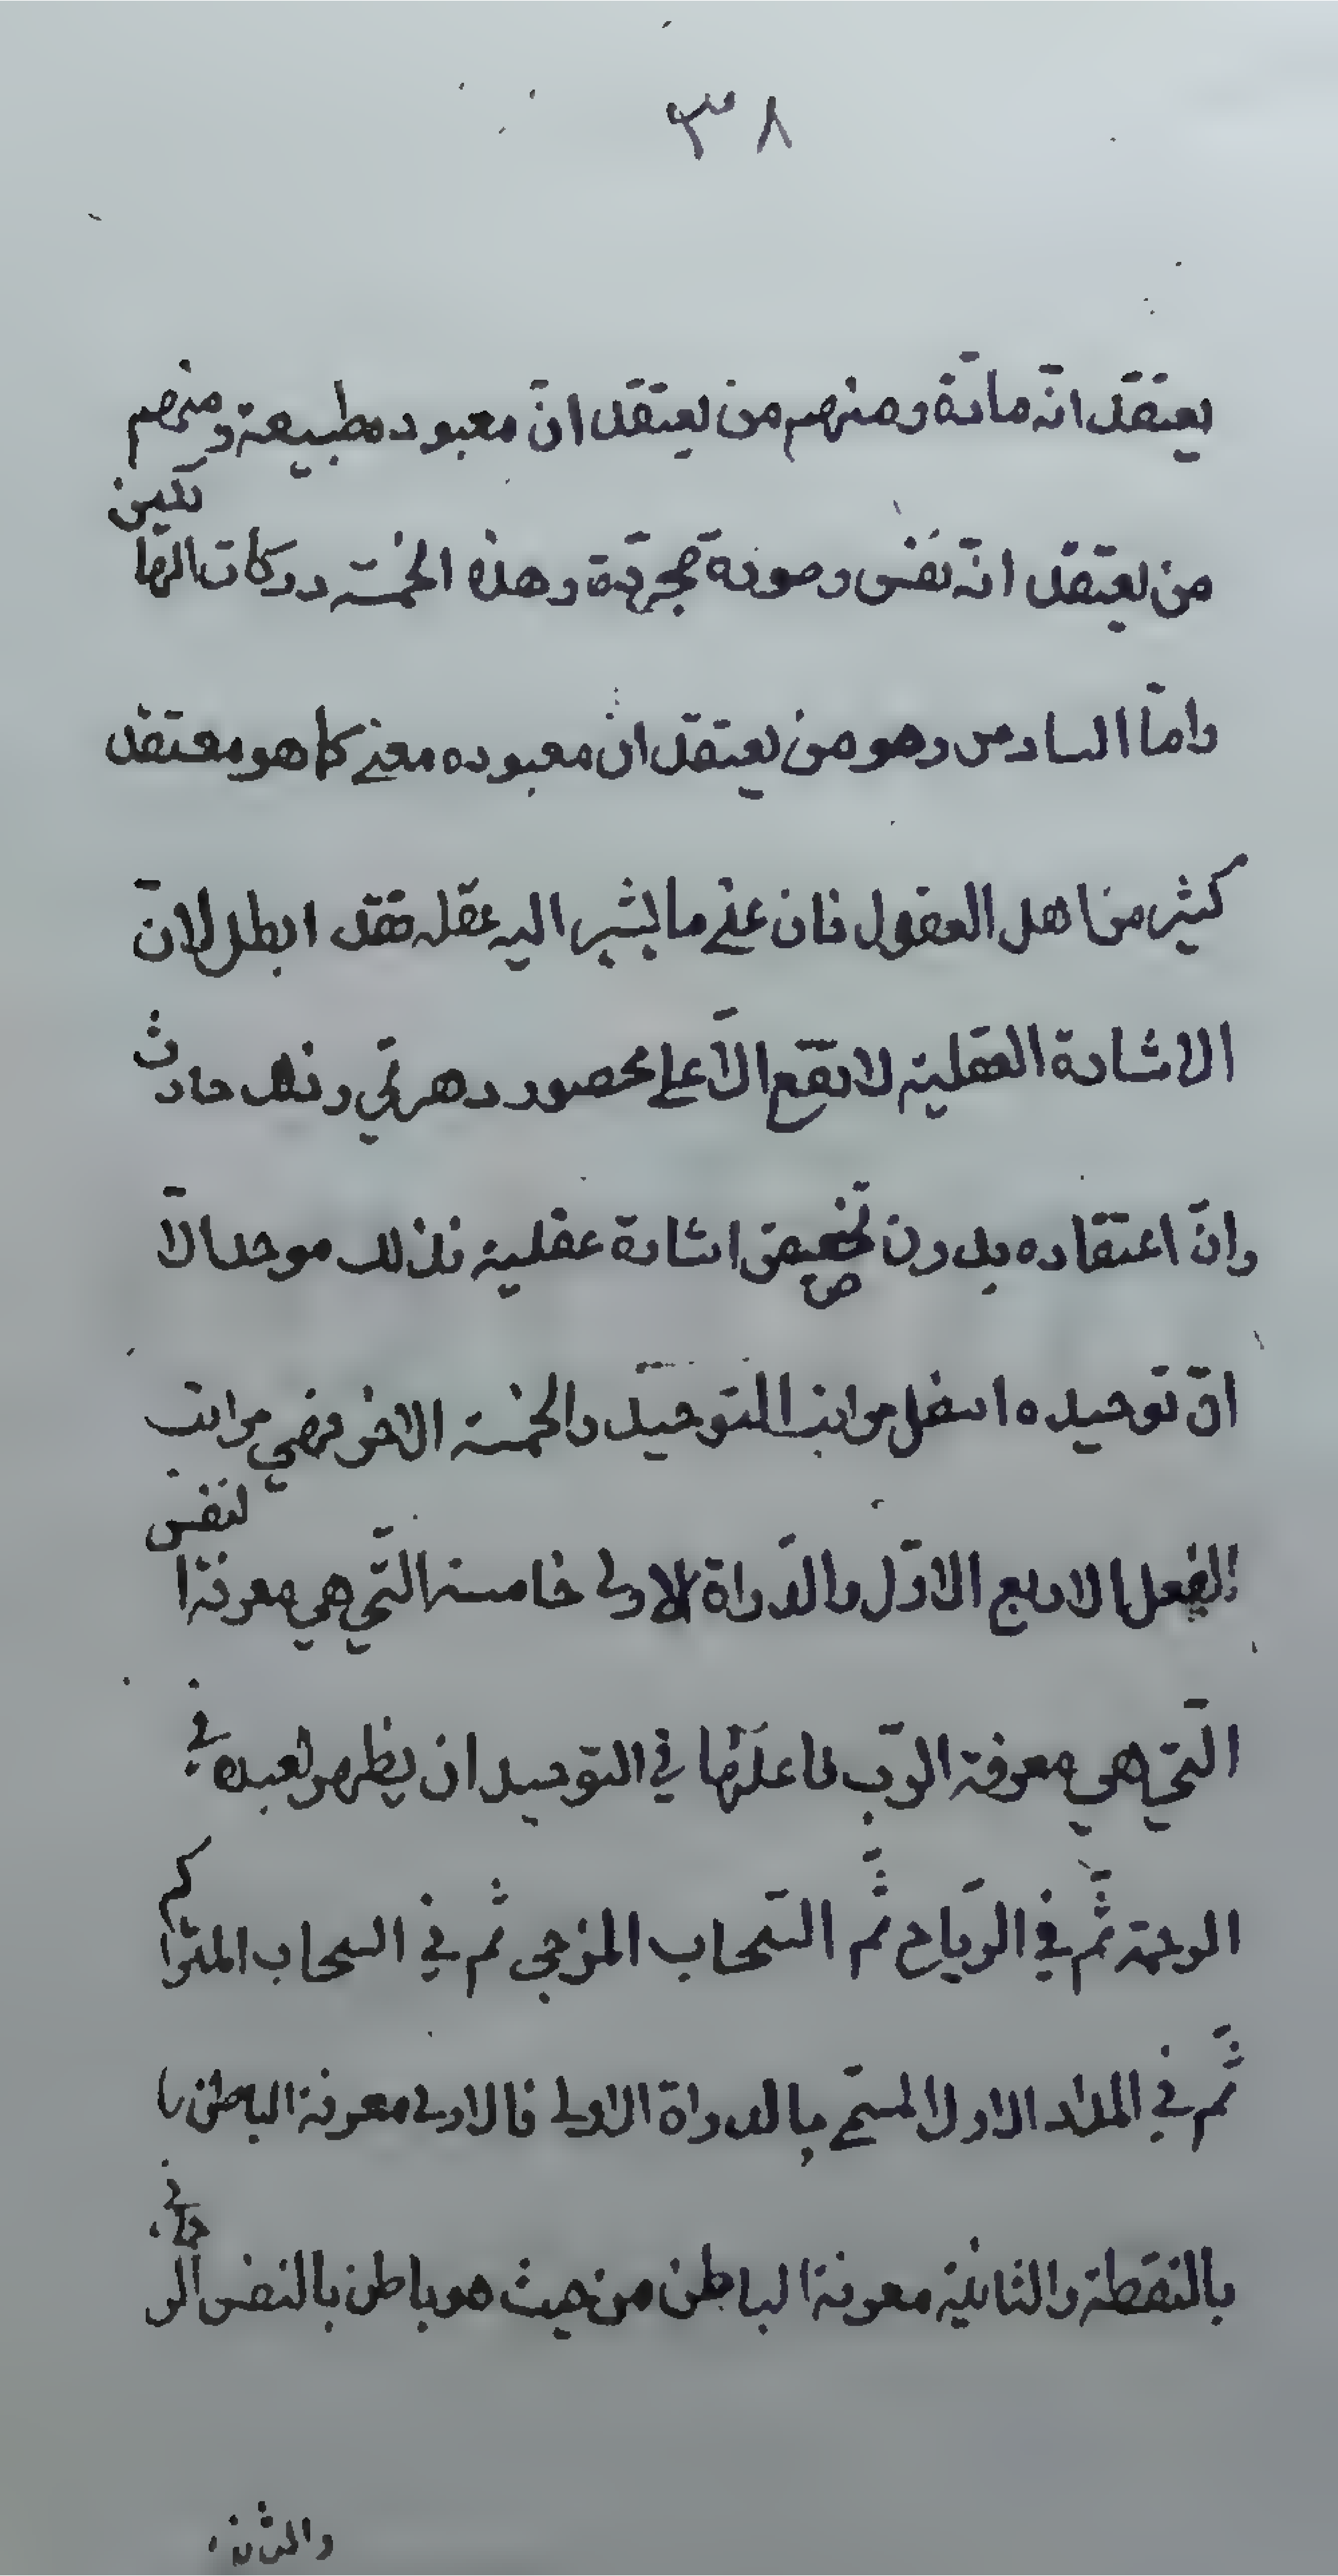 ٣٨
يعتقد انّه مادّة ومنهم من يعتقد انّ معبوده طبيعة ومنهم
من يعتقد انّه نفس وصورة مجرّدة وهذه الخمسة دركات الهالكين
وامّا السادس وهو من يعتقد ان معبوده معنى كما هو معتقد
كثير من اهل العقول فان عنى ما يشير اليه عقله فقد ابطل لانّ
الاشارة العقلية لا تقع الّا على محصور دهرىّ وذلك حادث
وانّ اعتقاده بدون تخصيص اشارة عقلية فذلك موحد الّا
انّ توحيده اسفل مراتب التوحيد والخمسة الاخر فهي مراتب
الفعل الاربع الاوّل والدّواة الاولى خامسة التّي هي معرفة النفس
التّي هي معرفة الرّب فاعلاها في التوحيد ان يظهر لعبده في
الرحمة ثمّ في الريّاح ثمّ السّحاب المزجى ثم في السحاب المتراكم
ثمّ في المداد الاول المسمّى بالدواة الاولى فالاولى معرفة الباطن
بالنقطة والثانية معرفة الباطن من حيث هو باطن بالنفس الرحماني
والثالثة